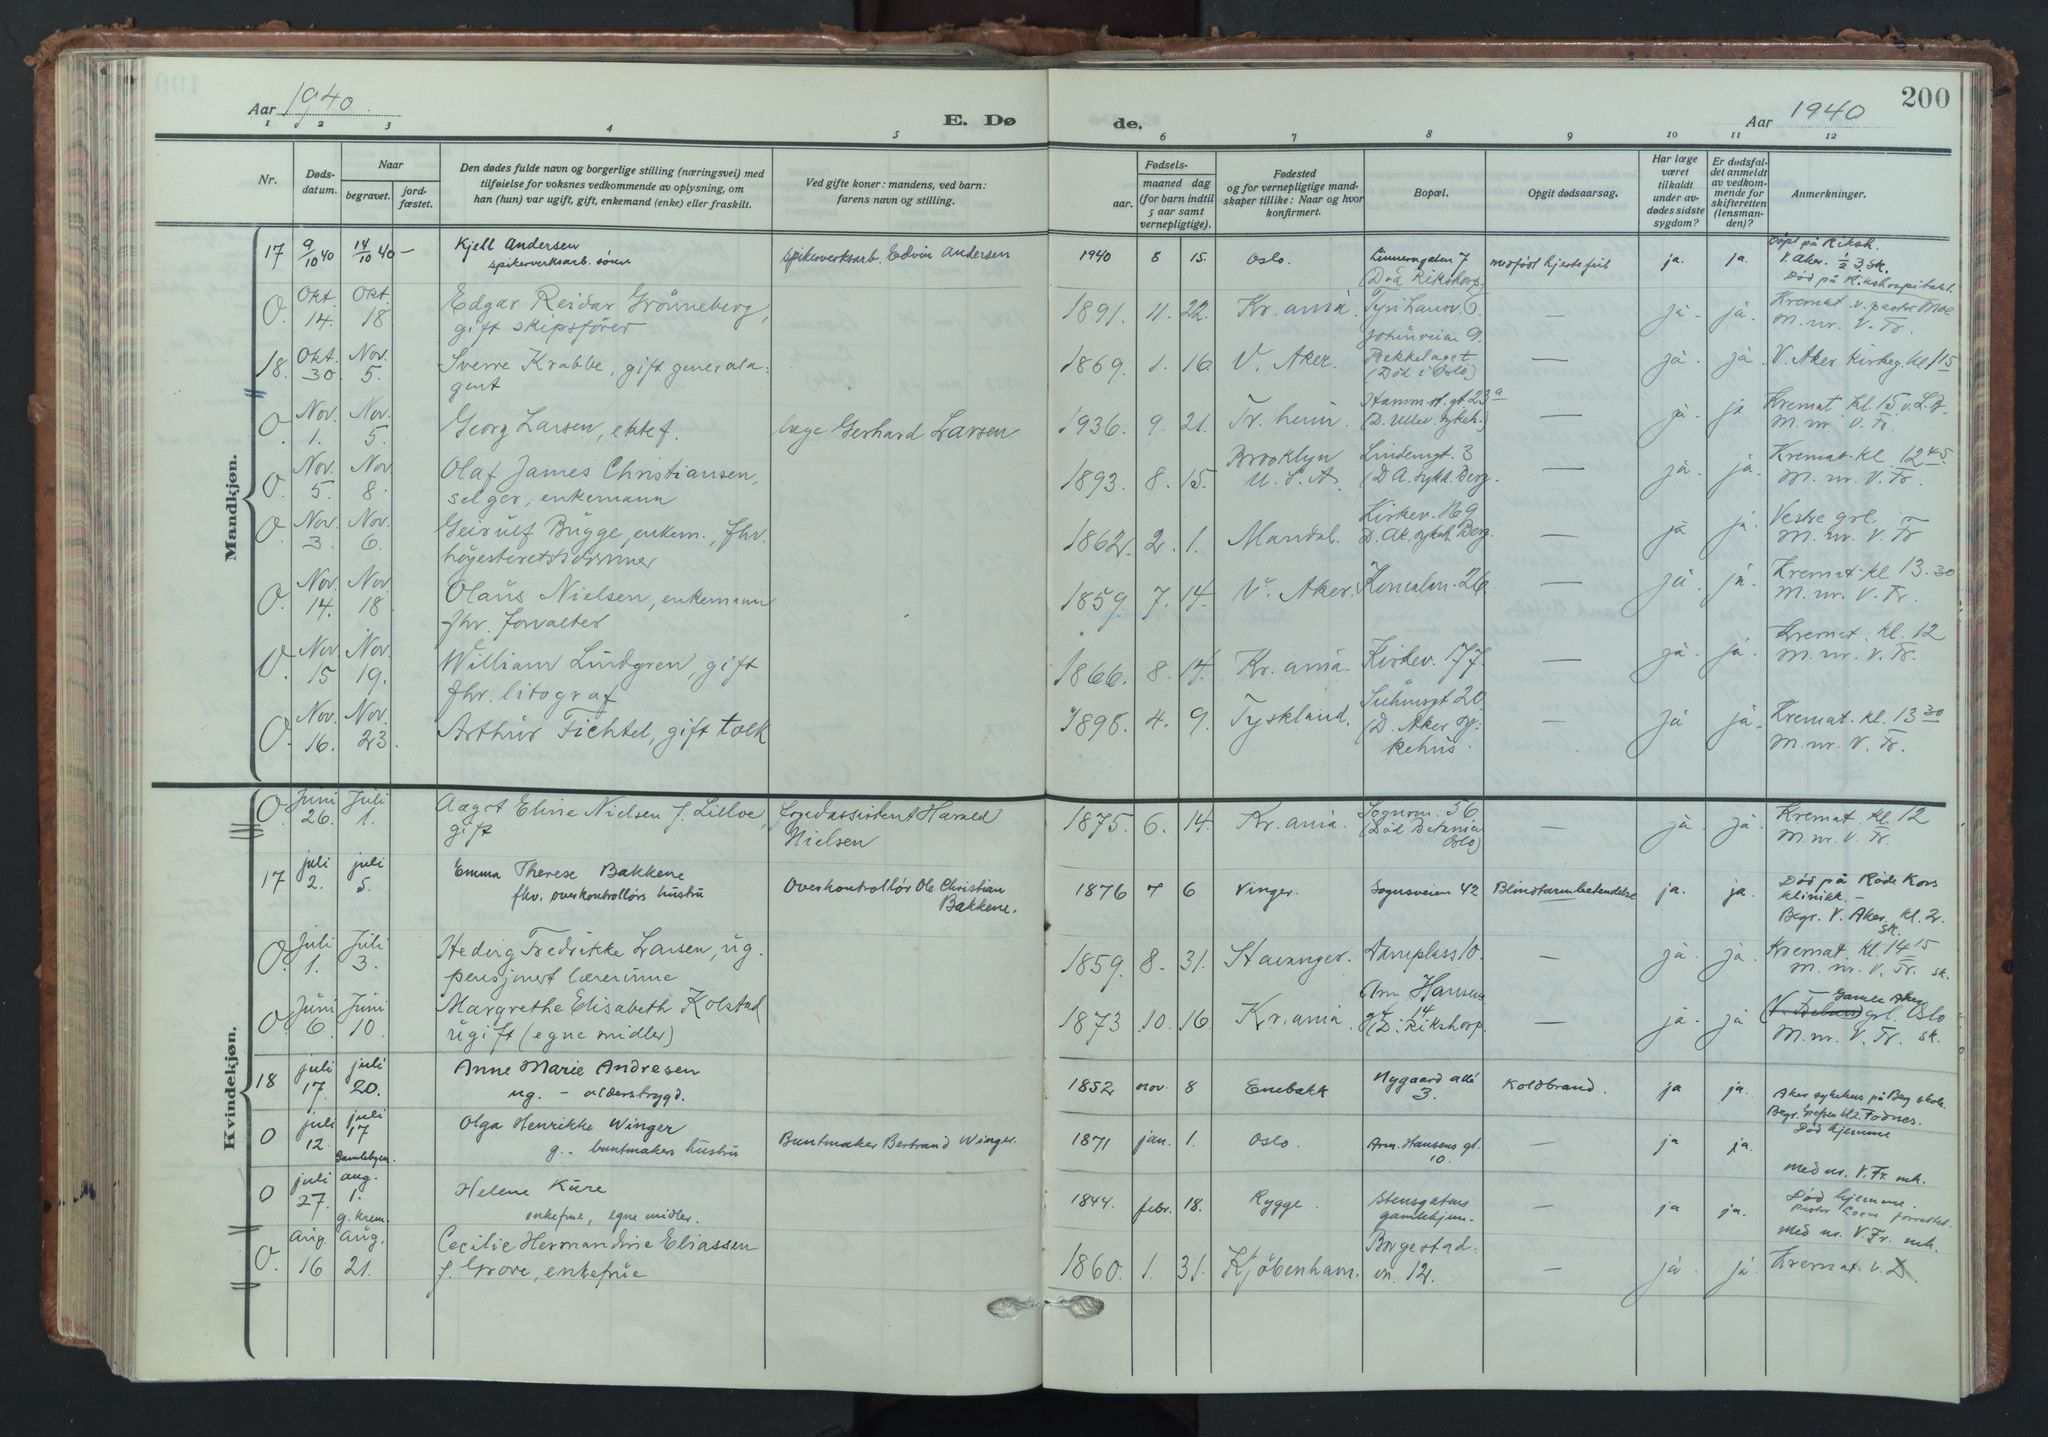 Aar 1940
E. Dø
de.
Aar 1940
200
1 2 3 4 5 6 7 8 9 10 11 12
Nr.
Døds-
datum.
Naar
begravet.
jord-
fæstet.
Den dødes fulde navn og borgerlige stilling (næringsvei) med
tilføielse for voksnes vedkommende av oplysning, om
han (hun) var ugift, gift, enkemand (enke) eller fraskilt.
Ved gifte koner: mandens, ved barn:
farens navn og stilling.
Fødsels-
aar.
maaned dag
(for barn indtil
5 aar samt
vernepligtige).
Fødested
og for vernepligtige mand-
skaper tillike: Naar og hvor
konfirmert.
Bopæl.
Opgit dødsaarsag.
Har læge
været
tilkaldt
under av-
dødes sidste
sygdom?
Er dødsfal-
det anmeldt
av vedkom-
mende for
skifteretten
(lensman-
den)?
Anmerkninger.
Mandkjøn.
17 9/10 40 14/10 40 — Kjell Andersen
spikerverksarb. sønn
spikerverksarb. Edvin Andersen
1940 8 15. Oslo. Linnesgaten 7
(Død Rikshosp.)
medfødt hjertefeil ja. ja.
Døpt på Riksh.
V. Aker. 1/2 3. sk.
Død på Rikshospitalet.
O. Okt. 14. Okt. 18. Edgar Reidar Grönneberg,
gift skipsförer
1891. 11. 22. Kr.ania. — ja. ja.
Kremat. v. pastor Moe
M. nr. V. Fr.
18. Okt. 30. Nov. 5. Sverre Krabbe, gift generala-
gent
1869. 1. 16. V. Aker. Jotunveien 9.
Bekkelaget
(Död i Oslo) — ja. ja. V. Aker Kirkeg. kl. 1 15
O. Nov. 1. Nov. 5. Georg Larsen, ektef.
læge Gerhard Larsen
1936. 9. 21. Tr.heim. 23 a
(D. Ullev. sykeh.) — ja. ja
Kremat. kl. 15
M. nr. V. Fr.
O. Nov. 5. Nov. 8. Olaf James Christiansen,
selger, enkemann
1893. 8. 15. Brooklyn
U. S. A. Lindemgt. 3
(D. A. sykh. Berg. — ja. ja.
Kremat. kl. 12 45.
M. nr. V. Fr.
O. Nov. 3. Nov. 6. Geirulf Bugge, enkem., fhv.
höyesterettsdommer
1862. 2. 1. Mandal. Kirkev. 169
D. Ak. sykeh. Berg. — ja ja.
Vestre grl.
M. nr. V. Fr
O. Nov. 14. Nov. 18. Olaus Nielsen, enkemann
fhv. forvalter
1859. 7. 14. V. Aker. 26. — ja. ja.
Kremat. kl. 13.30
M. nr. V. Fr.
O. Nov. 15 Nov. 19. William Lindgren, gift
fhv. litograf
1866. 8. 14. Kr.ania. Kirkev. 177. — ja. ja.
Kremat. kl. 12
M. nr. V. Fr.
O. Nov. 16. Nov. 23. Arthur Fichtel, gift tolk
1898. 4. 9. Tyskland. Suhmsgt 20
(D. Aker sy-
kehus. — ja ja.
Kremat. kl. 13 30
M. nr. V. Fr.
Kvindekjøn.
O. Juni 26. Juli 1. Aagot Eline Nielsen f. Lilloe,
gift
Harald
Nielsen
1875. 6. 14. Kr.ania. Sognsv. 56
(Död Betanien
Oslo) — ja. ja.
Kremat. kl. 12
M. nr. V. Fr.
17 juli 2. juli 5. Emma Therese Bakkene
fhv. overkontrollørs hustru
Overkontrollør Ole Christian
Bakkene.
1876 7 6 Vinger. Sognsveien 42 Blindtarmbetendelse ja. ja.
Død på Røde Kors
klinikk. —
Begr. V. Aker. kl. 2.
sk.
O. Juli 1. Juli 3. Hedvig Fredrikke Larsen, ug.
pensjonert lærerinne
1859. 8. 31. Stavanger. Damplass 10. — ja. ja.
Kremat. kl. 14 15
M. nr. V. Fr. sk.
O Juni 6. Juni 10. Margrethe Elisabeth Kolstad
ugift (egne midler)
1873 10. 16. Kr.ania. Arn. Hansens
gt. 14
(D. i Rikshosp. — ja. ja
Gamle Aker
grl. Oslo
M. nr. V. Fr. sk.
18 juli 17. juli 20. Anne Marie Andresen
ug. – alderstrygd.
1852 nov. 8 Enebakk Nygaard allé
3. Koldbrand. ja ja.
Aker sykehus på Berg skole.
Begr. Grefsen kl 2 Fodnes.
O juli 12. juli 17 Gamlebyen. Olga Henrikke Winger
g. . buntmakers hustru
Buntmaker Bertrand Winger.
1871 jan. 1. Oslo. Arn. Hansens gt.
10. — ja ja.
Død hjemme
med nr. V. Fr. mk.
O juli 27. aug. 1. g. krem. Helene Kure
enkefrue, egne midler.
1844 febr. 18. Rygge. Stensgatens
gamlehjem. — ja ja.
Død hjemme.
med nr. V. Fr. mk.
O. Aug. 16 Aug. 21. Cecilie Hermandine Eliassen
f. Grove, enkefrue
1860. 1. 31. Kjöbenhavn. Borgestad-
vn. 12. — ja. ja. Kremat. v.